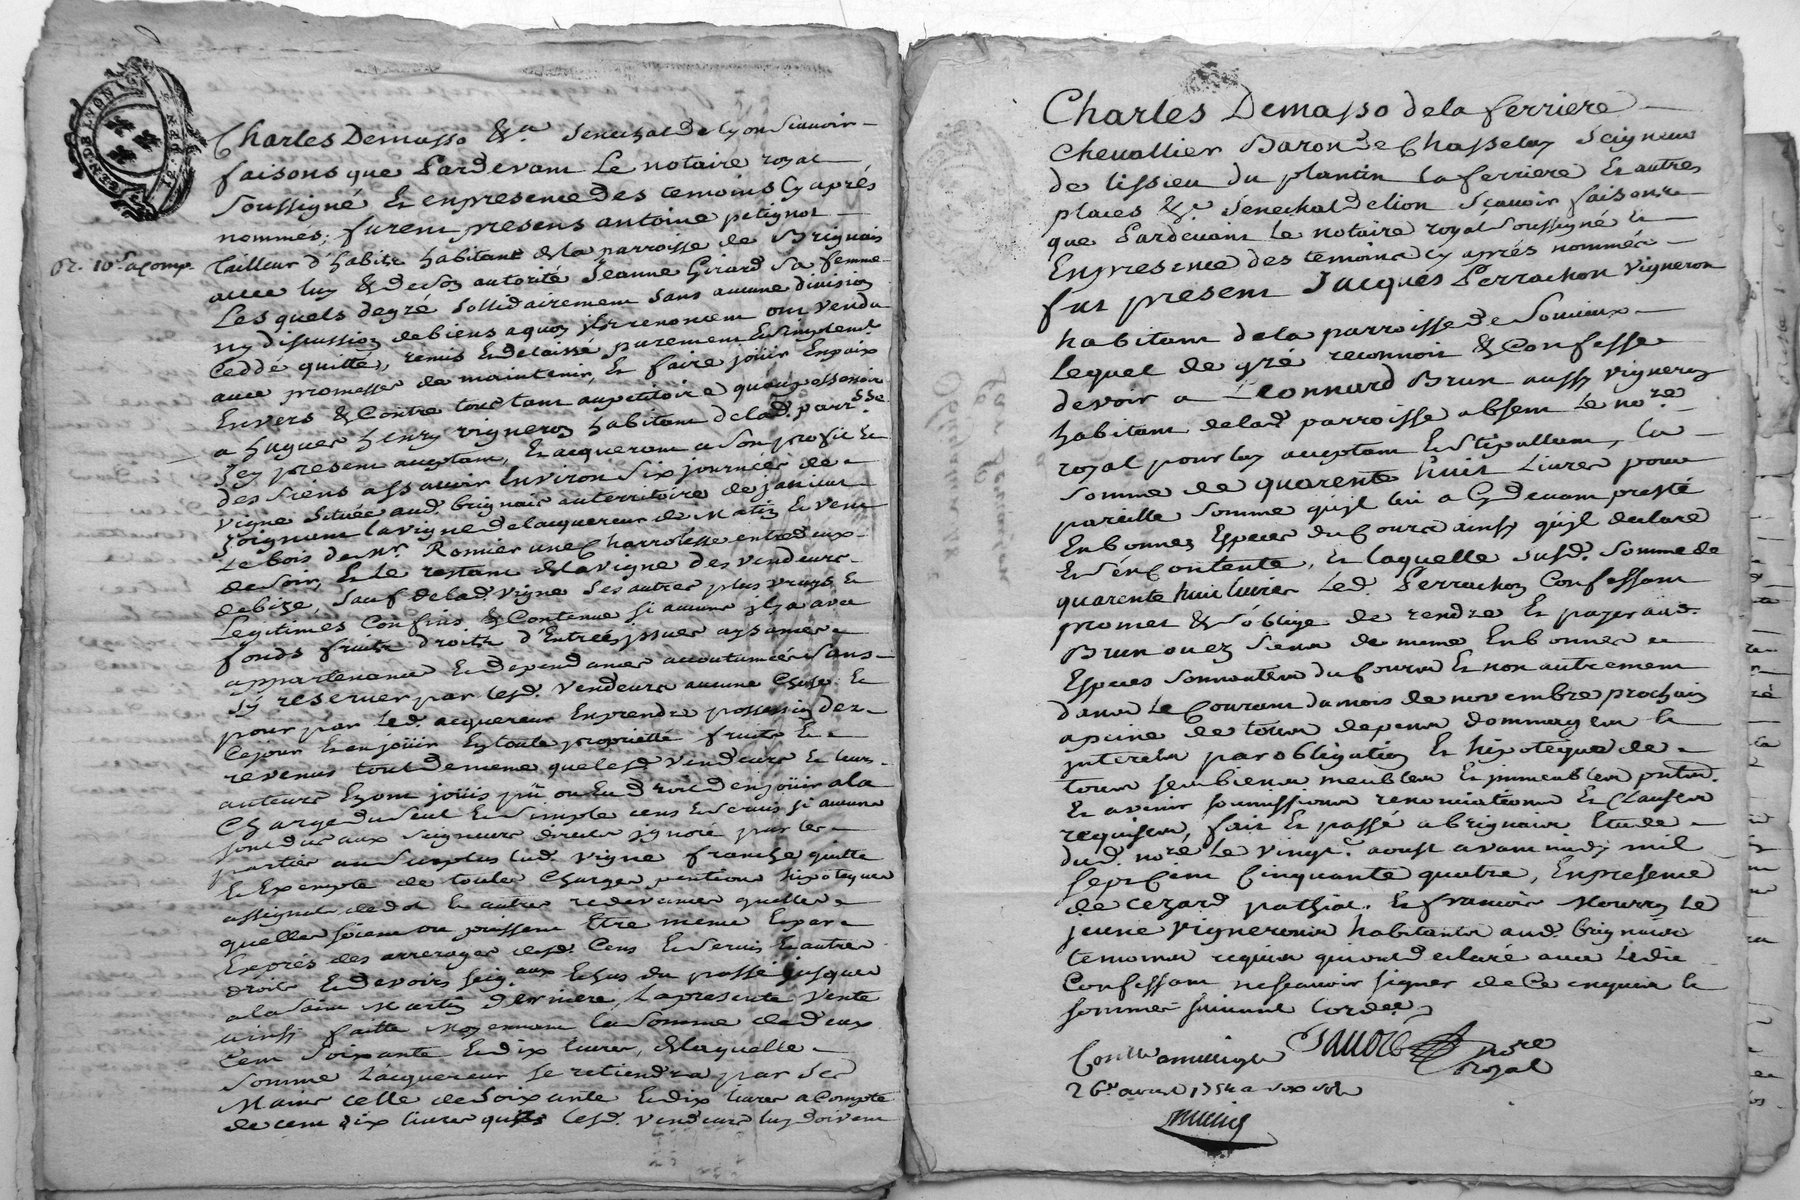 GEN. DE LYON
Charles Demasso &ca Senechal de Lyon Scavoir
faisons que Pardevant Le notaire royal
Soussigné Et enpresence des temoins Cy aprés
nommés; furent presens antoine petignot
tailleur d'habits habitant de la parroisse de Brignais
avec luy & de son autorité Jeanne Girard Sa femme
Lesquels degré Sollidairement Sans aucune division
ny discussion de biens a quoy ils renoncent ont vendu
Ceddé quitté, remis Et delaissé purement Et simplement
avec promesse de maintenir, Et faire joüir En paix
Envers & Contre tous tant au petitoire qu'au possessoire
a hugues henry vigneron habitant de lad. parrsse
Icy present acceptant, Et acquerant a Son profit Et
des Siens assavoir Environ Six journées de
vigne Située aud. brignais au territoire de
Joignant la vigne de l'acquereur de Matin Et vent
Le bois de Mr. Romier une Charrotesse entredeux
de soir, Et le restant de la vigne des vendeurs
de bize, Sauf de lad. vigne Ses autres plus vrays Et
Legitimes Confins & Contenue Si aucuns il y a avec
fonds fruits droits d'Entrées issues aysances
appartenance Et dependances accoutumées Sans
sy reserver par lesd. vendeurs aucune Chose Et
pour par Led. acquereur En prendre possession dez
Cejour Et en joüir En toute proprietté fruits Et
revenus tout de meme que lesd. vendeurs Et leurs
auteurs En ont joüis pû ou Eu droit d'en joüir a la
Charge du Seul Et Simple cens Et servis Si aucuns
sont dus aux Seigneurs directs ignoré par les
parties au Surplus lad. vigne franche quitte
Et Exempte de toutes Charges pentions hipoteques
assignats de dot Et autres redevances quelles
quelles soient ou puissent Etre meme Expar
Exprés des arrerages desd. Cens Et servis Et autres
droits Et devoirs Seig.aux Echus du passé jusques
a la Saint Martin derniere, La presente vente
ainsy faitte Moyennant la Somme de deux
Cent Soixante Et dix livres, de laquelle
Somme L'acquereur Se retiendra par Ses
Mains celle de Soixante Et dix livres a Compte
de cent dix livres que lesd. vendeurs luy doivent
Charles Demasso de la ferriere
Chevallier Baron de Chasselay Seigneur
de lissieu du plantin la ferriere Et autres
places &c Senechal de lion Scavoir faisons
que Pardevant Le notaire royal Soussigné Et
Enpresence des temoins cy aprés nommés
fut present Jacques Perrachon vigneron
habitant de la parroisse de Soucieux
Lequel de gré reconnoit & Confesse
devoir a Leonnard Brun aussy vigneron
habitant de lad. parroisse absent Le nore.
royal pour luy acceptant Et stipullant, la
Somme de quarente huit Livres pour
pareille Somme qu'il lui a Cy devant presté
En bonnes Especes du Cours ainsy qu'il declare
Et s'en Contente, Et laquelle susd. Somme de
quarente huit livres Led. Perrachon Confessant
promet & s'oblige de rendre Et payer aud.
Brun ou ez Siens de meme En bonnes
Especes Sonnantes du Cours Et non autrement
dans Le Courant du mois de novembre prochain
a peine de tous depens dommages Et
interets par obligation Et hipoteque de
tous Ses biens meubles Et immeubles pnts.
Et avenir soumissions renonciations Et Clauses
requises, fait Et passé a brignais Etude
dud. nore Le vingt aoust avant midy mil
Sept Cent Cinquante quatre, Enpresence
de Cezard pathiot. Et francois Mourry Le
jeune vignerons habitants aud. brignais
temoins requis qui ont declaré avec Ledit
Confessant ne Scavoir signer de Ce enquis Et
sommés suivant L'ordce
nore
royal